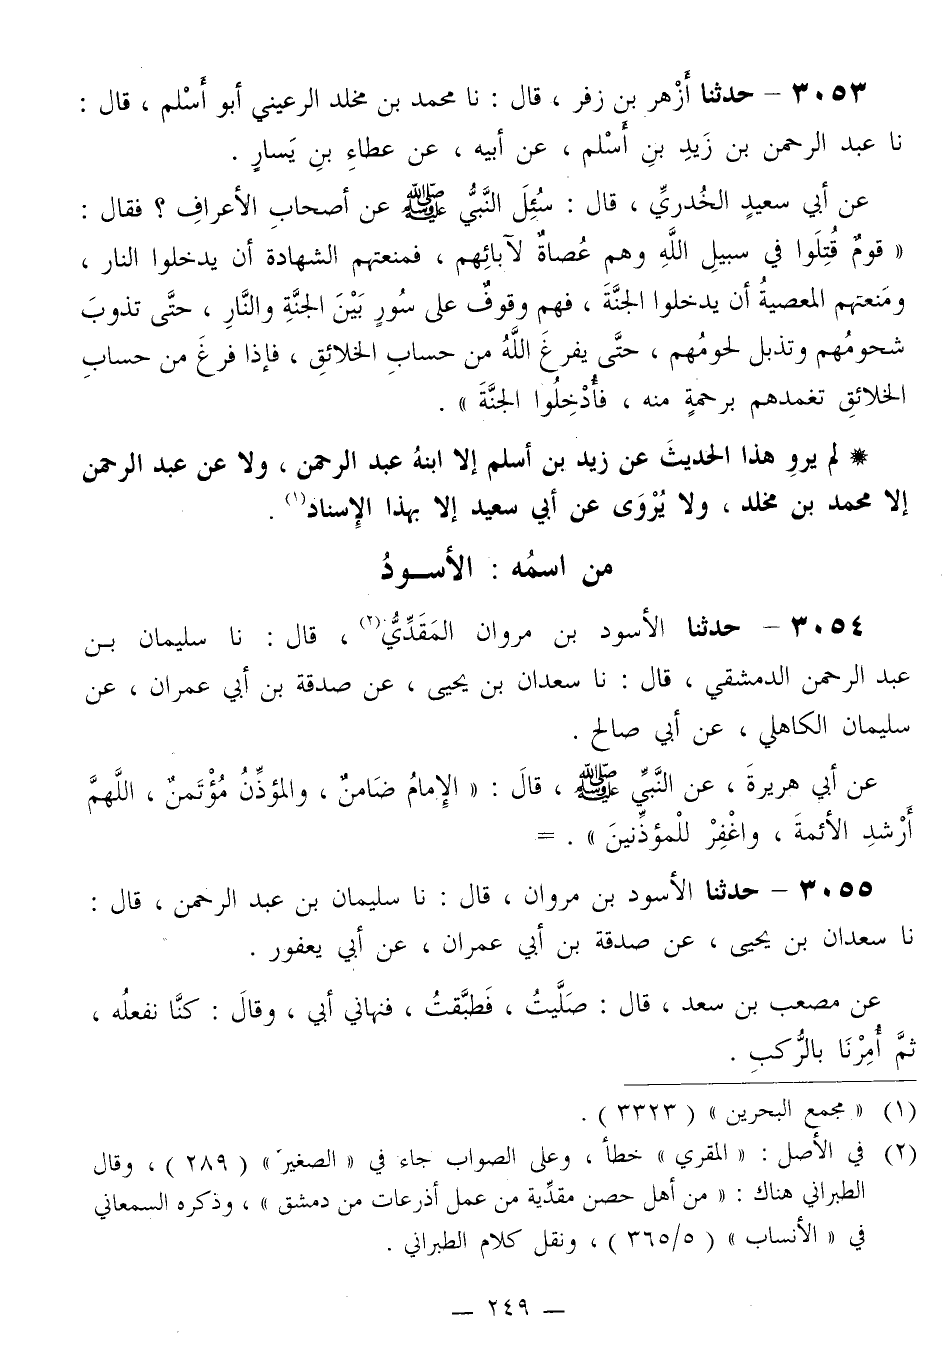 ٣٠٥٣ – حدثنا أَزْهر بن زفر ، قال : نا محمد بن مخلد الرعيني أبو أَسْلم ، قال :
نا عبد الرحمن بن زَيدِ بنِ أَسْلم ، عن أبيه ، عن عطاءِ بنِ يَسارٍ .
عن أبي سعيدٍ الخُدريِّ ، قال : سُئِلَ النَّبيُّ ﷺ عن أصحابِ الأعرافِ ؟ فقال :
« قومٌ قُتِلَوا في سبيلِ اللَّهِ وهم عُصاةٌ لآبائِهم ، فمنعتهم الشهادة أن يدخلوا النار ،
ومَنعتهم المعصيةُ أن يدخلوا الجنَّةَ ، فهم وقوفٌ على سُورٍ بَيْنَ الجنَّةِ والنَّارِ ، حتَّى تذوبَ
شحومُهم وتذبل لحومُهم ، حتَّى يفرغَ اللَّهُ من حسابِ الخلائقِ ، فإذا فرغَ من حسابِ
الخلائقِ تغمدهم برحمةٍ منه ، فأُدْخِلُوا الجنَّةَ » .
* لم يروِ هذا الحديثَ عن زيد بن أسلم إلا ابنهُ عبد الرحمن ، ولا عن عبد الرحمن
إلا محمد بن مخلد ، ولا يُرْوَى عن أبي سعيد إلا بهذا الإسناد(١) .
من اسمُه : الأســودُ
٣٠٥٤ – حدثنا الأسود بن مروان المَقَدِّيُّ(٢) ، قال : نا سليمان بـن
عبد الرحمن الدمشقي ، قال : نا سعدان بن يحيى ، عن صدقة بن أبي عمران ، عن
سليمان الكاهلي ، عن أبي صالح .
عن أبي هريرةَ ، عن النَّبيِّ ﷺ ، قالَ : « الإمامُ ضَامنٌ ، والمؤذِّنُ مُؤْتَمنٌ ، اللَّهمَّ
أَرْشدِ الأئمةَ ، واغْفِرْ للْمؤذِّنينَ » . =
٣٠٥٥ – حدثنا الأسود بن مروان ، قال : نا سليمان بن عبد الرحمن ، قال :
نا سعدان بن يحيى ، عن صدقة بن أبي عمران ، عن أبي يعفور .
عن مصعب بن سعد ، قال : صَلَّيتُ ، فَطبَّقتُ ، فنهاني أبي ، وقالَ : كنَّا نفعلُه ،
ثمَّ أُمِرْنَا بالرُّكبِ .
(١) « مجمع البحرين » ( ٣٣٢٣ ) .
(٢) في الأصل : « المقري » خطأ ، وعلى الصواب جاء في « الصغير » ( ٢٨٩ ) ، وقال
الطبراني هناك : « من أهل حصن مقدِّية من عمل أذرعات من دمشق » ، وذكره السمعاني
في « الأنساب » ( ٣٦٥/٥ ) ، ونقل كلام الطبراني .
— ٢٤٩ —